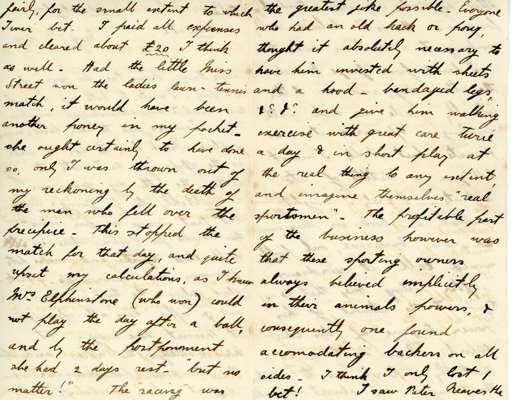 fairly, for the small extent to which
I ever bet. I paid all expenses
and cleared about £20 I think
as well - Had the little Miss
Street won the ladies lawn-tennis
match, it would have been
another poney in my pocket -
she ought certainly to have done
so, only I was thrown out of
my reckoning by the death of
the man who fell over the
precipice - This stopped the
match for that day, and quite
upset my calculations, as I knew
Mrs Elphinstone (who won) could
not play the day after a ball,
and by the postponment
she had 2 days rest - "but no
matter!" The racing was
the greatest joke possible - Everyone
who had an old hack or pony,
thought it absolutely necessary to
have him invested with sheets
and a hood - bandaged legs,
&c &c and give him walking
exercise with great care twice
a day & in short play at
the real thing to any extent,
and imagine themselves "real
sportsmen" - The profitable part
of the business however was
that these sporting owners
always believed implicitly
in their animals powers, &
consequently one found
accomodating backers on all
sides - I think I only lost 1
bet! I saw Peter Reaves the